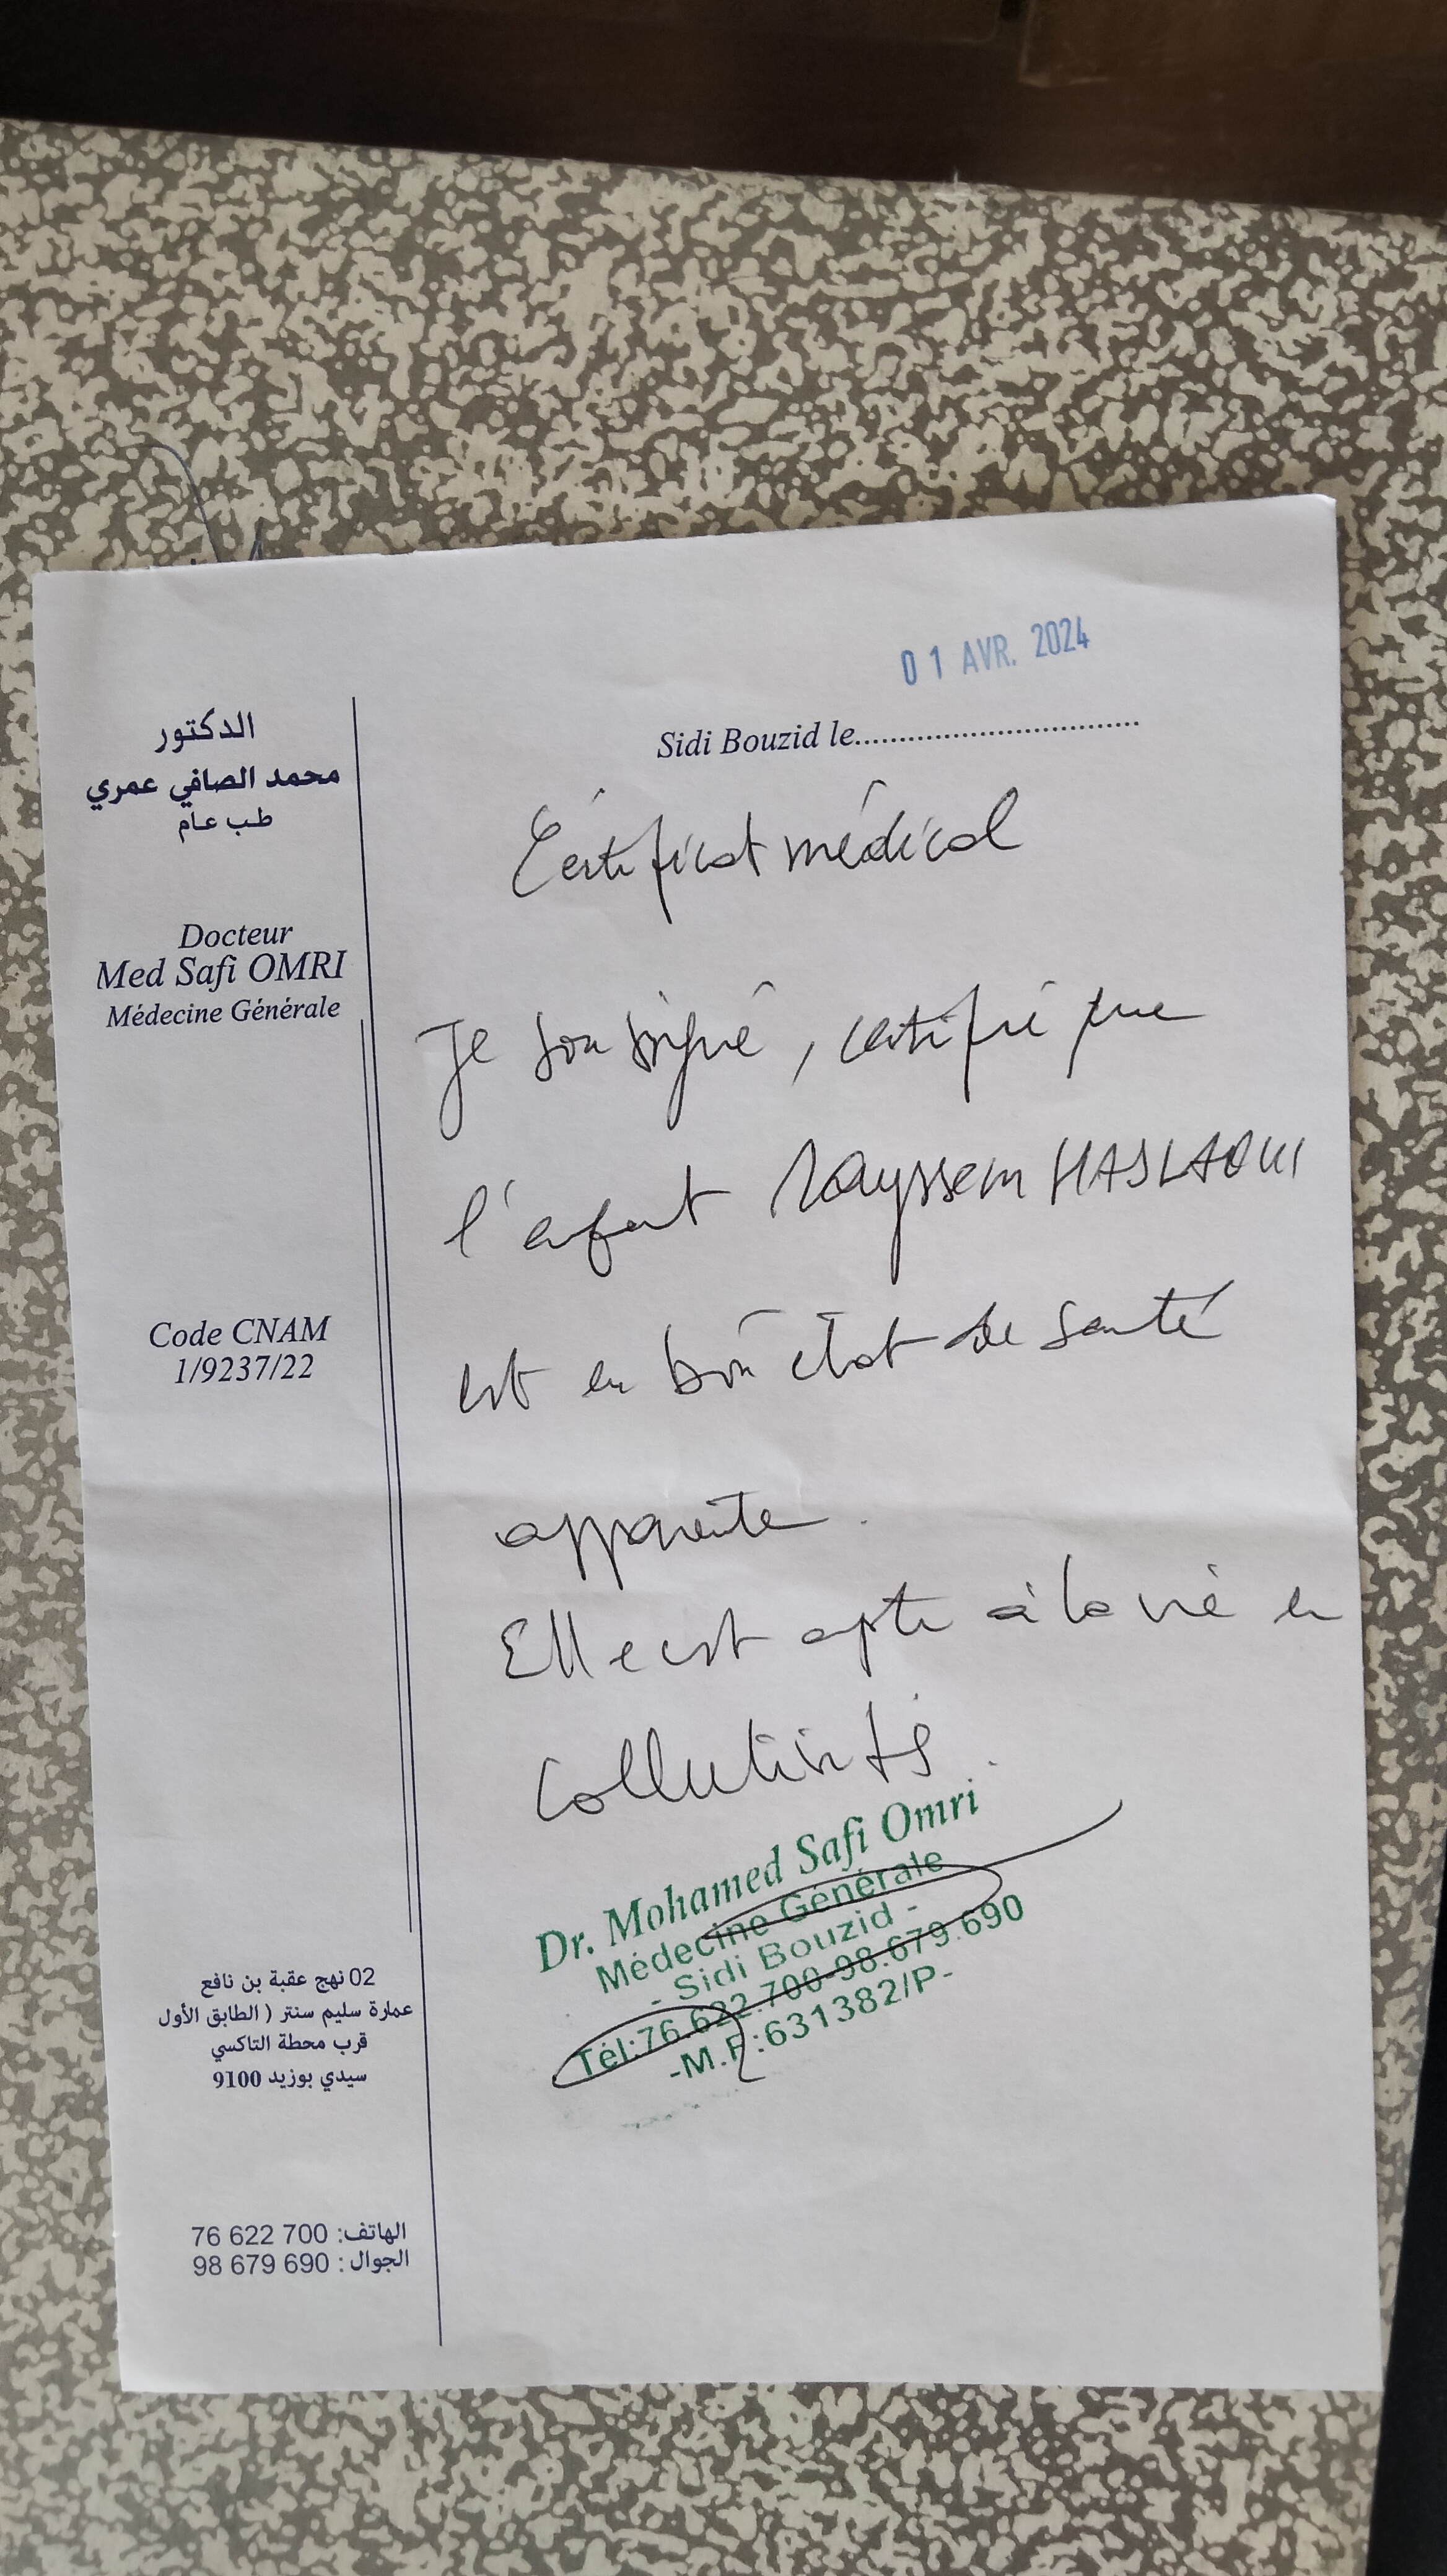 01 AVR. 2024
Sidi Bouzid le
الدكتور
محمد الصافي عمري
طب عام
Docteur
Med Safi OMRI
Médecine Générale
Code CNAM
1/9237/22
02 نهج عقبة بن نافع
عمارة سليم سنتر ( الطابق الأول
قرب محطة التاكسي
سيدي بوزيد 9100
الهاتف: 76 622 700
الجوال : 98 679 690
Certificat médical
Je soussigné, certifié que
l'enfant HASLAOUI
est en bon état de santé
apparente.
Elle est apte à la vie en
collectivité.
Dr. Mohamed Safi Omri
Médecine Générale
- Sidi Bouzid -
Tél:76.622.700-98.679.690
-M.F:631382/P-